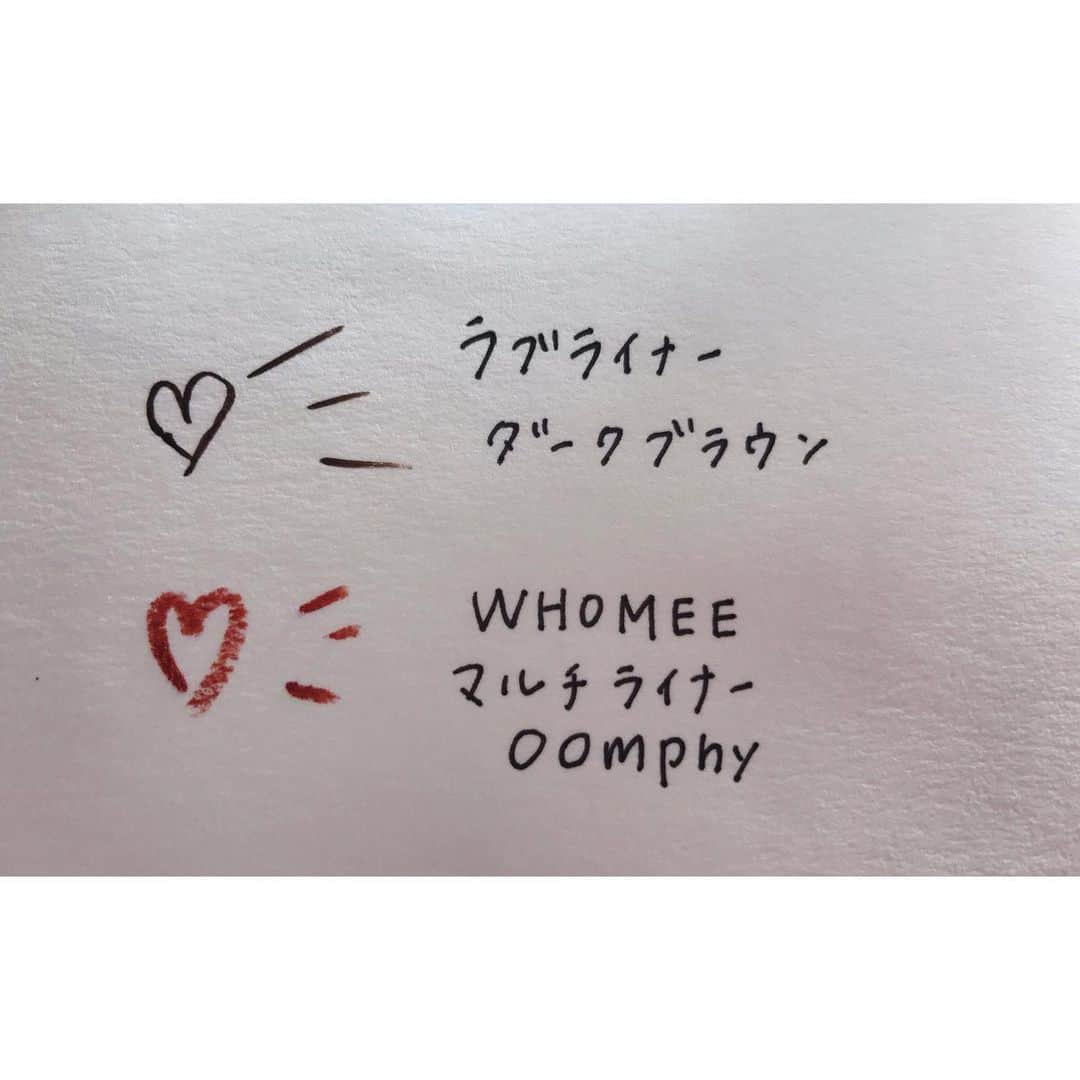 ラブライナー
ダークブラウン
WHOMEE
マルチライナー
oomphy